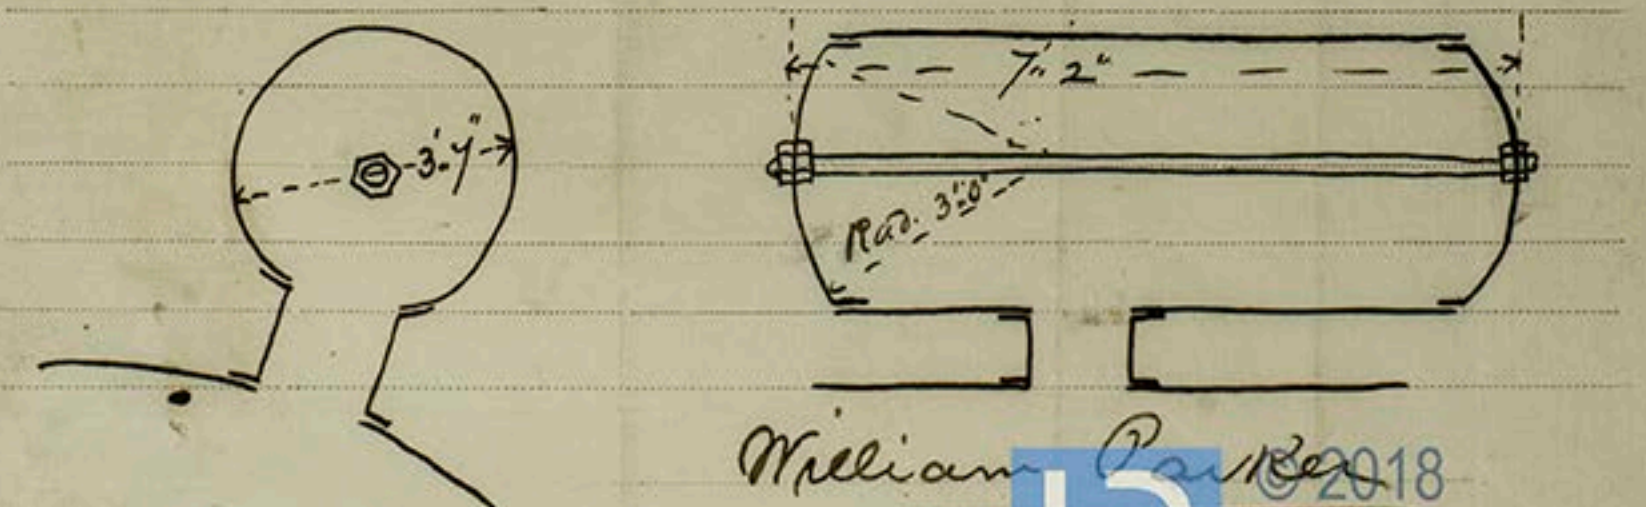 7' 2"
3' 4"
Rad. 3' 0"
William Parker
© 2018